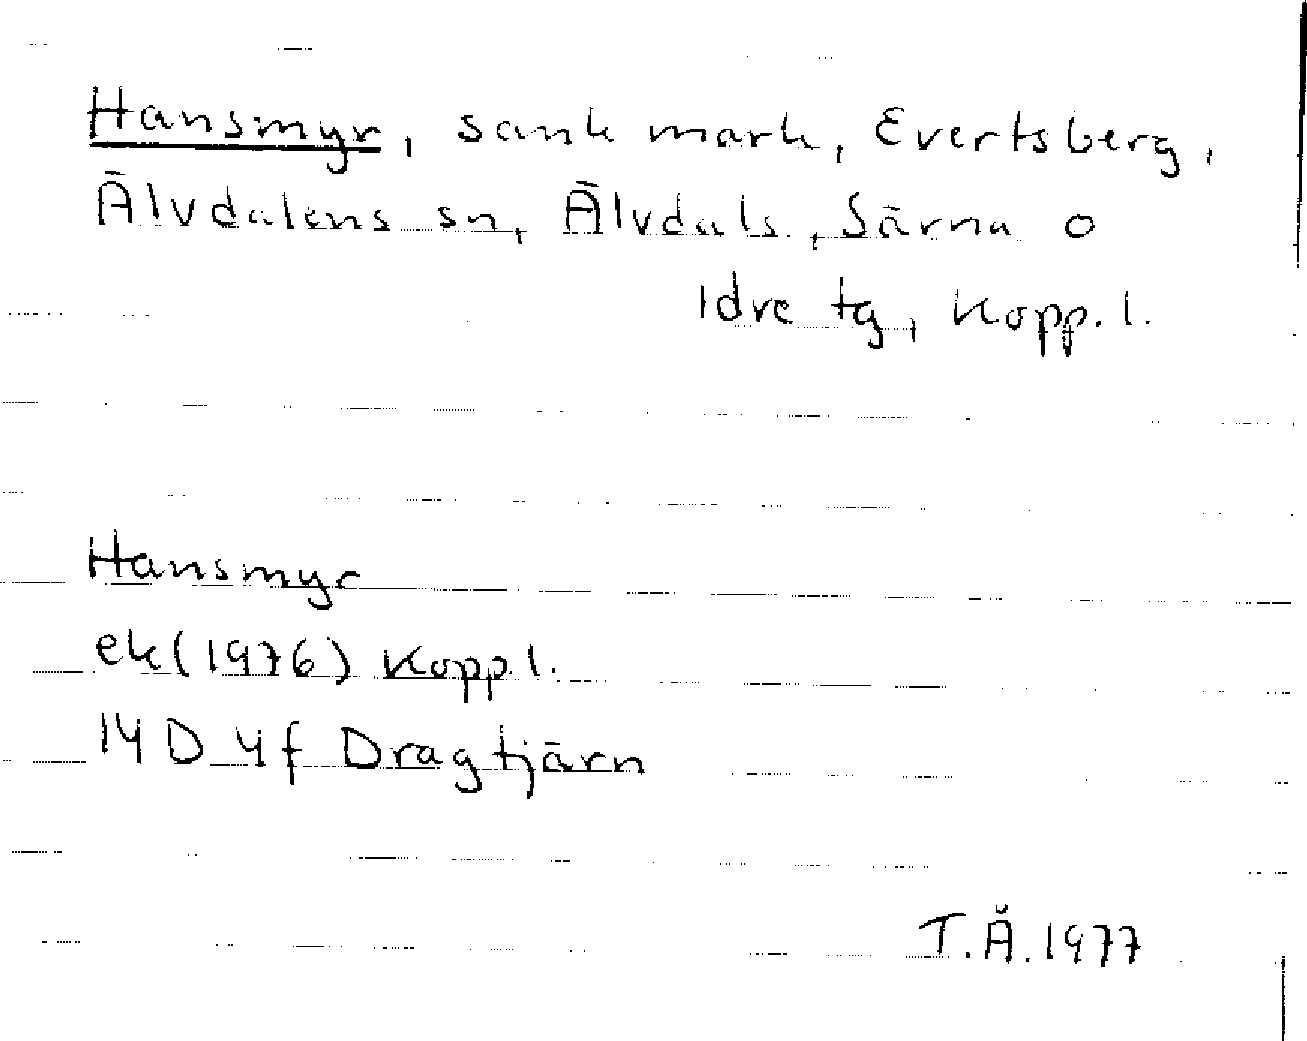 Hansmyr, sank mark, Evertsberg,
Älvdalens sn, Älvdals, Särna o
Idre tg, Kopp. l.
Hansmyr
ek (1976) Kopp. l.
14 D 4 f Dragtjärn
T.Å. 1977